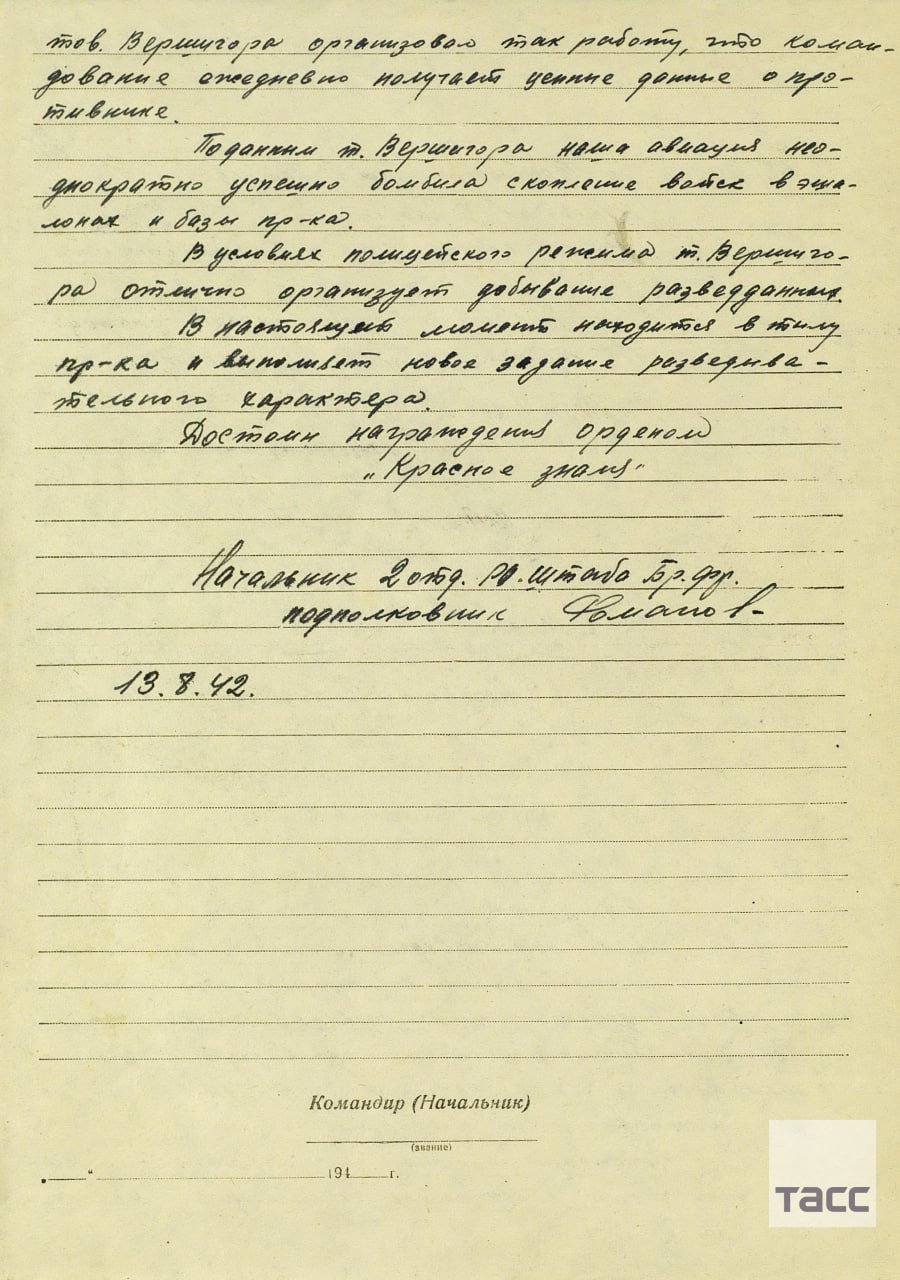 тов. Вершигора организовал так работу, что коман-
дование ежедневно получает ценные данные о про-
тивнике.
По данным т. Вершигора наша авиация нео-
днократно успешно бомбила скопление войск в эше-
лонах и базы пр-ка.
В условиях полицейского режима т. Вершиго-
ра отлично организует добывание разведданных.
В настоящий момент находится в тылу
пр-ка и выполняет новое задание разведыва-
тельного характера.
Достоин награждения орденом
„Красное знамя"
Начальник 2 отд. РО. штаба Бр. фр.
подполковник
13.8.42.
Командир (Начальник)
(звание)
„ “ 194 г.
тасс